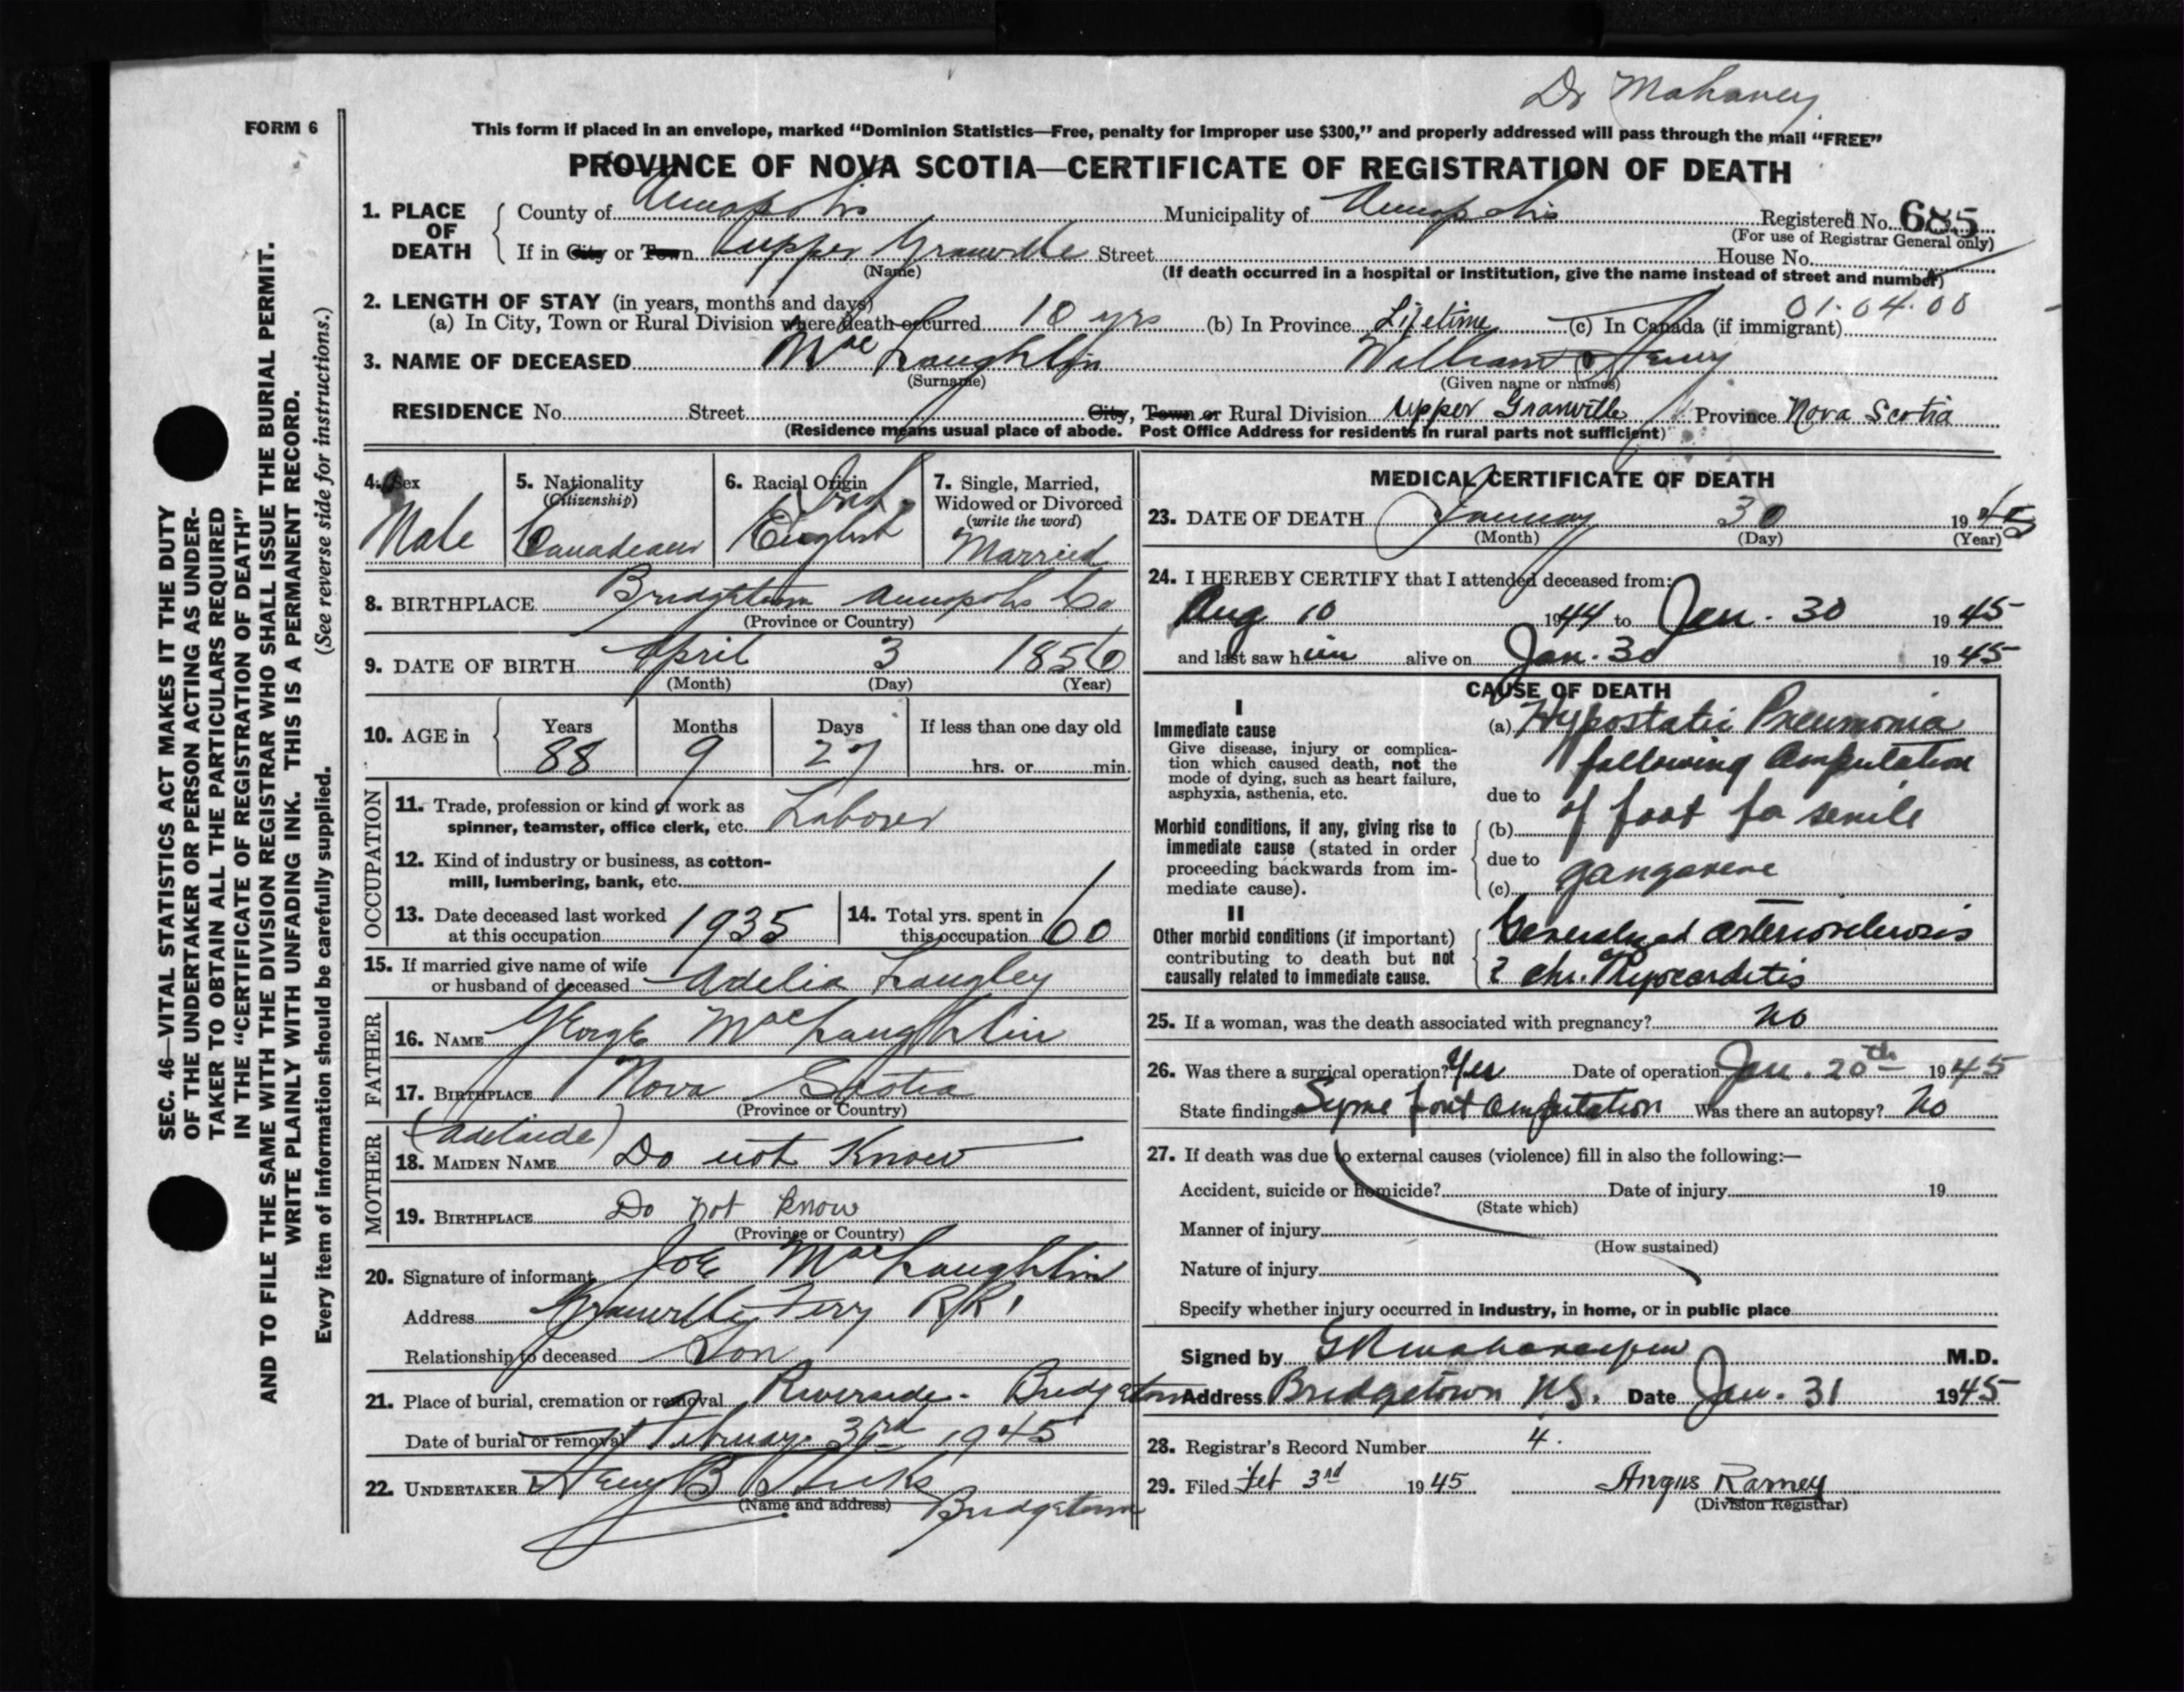 Dr Mahaney
FORM 6
This form if placed in an envelope, marked “Dominion Statistics—Free, penalty for improper use $300,” and properly addressed will pass through the mail “FREE”
PROVINCE OF NOVA SCOTIA—CERTIFICATE OF REGISTRATION OF DEATH
1. PLACE OF DEATH
County of Annapolis Municipality of Annapolis Registered No. 685
(For use of Registrar General only)
If in City or Town Upper Granville Street House No.
(Name) (If death occurred in a hospital or institution, give the name instead of street and number)
2. LENGTH OF STAY (in years, months and days) 01.04.00
(a) In City, Town or Rural Division where death occurred 10 yrs (b) In Province Lifetime (c) In Canada (if immigrant)
3. NAME OF DECEASED MacLaughlin William Henry
(Surname) (Given name or names)
RESIDENCE No. Street City, Town or Rural Division Upper Granville Province Nova Scotia
(Residence means usual place of abode. Post Office Address for residents in rural parts not sufficient)
4. Sex
Male
5. Nationality
(Citizenship)
Canadian
6. Racial Origin
Irish
English
7. Single, Married,
Widowed or Divorced
(write the word)
Married
8. BIRTHPLACE Bridgetown Annapolis Co
(Province or Country)
9. DATE OF BIRTH April 3 1856
(Month) (Day) (Year)
10. AGE in Years Months Days If less than one day old
88 9 27 hrs. or min.
OCCUPATION
11. Trade, profession or kind of work as
spinner, teamster, office clerk, etc. Laborer
12. Kind of industry or business, as cotton-
mill, lumbering, bank, etc.
13. Date deceased last worked
at this occupation 1935
14. Total yrs. spent in
this occupation 60
15. If married give name of wife
or husband of deceased Adelia Langley
FATHER
16. NAME George MacLaughlin
17. BIRTHPLACE Nova Scotia
(Province or Country)
MOTHER
(Adelaide)
18. MAIDEN NAME Do not Know
19. BIRTHPLACE Do not Know
(Province or Country)
20. Signature of informant Joe MacLaughlin
Address Granville Ferry RR1
Relationship to deceased Son
21. Place of burial, cremation or removal Riverside - Bridgetown
Date of burial or removal February 3rd 1945
22. UNDERTAKER Henry B Hicks
(Name and address) Bridgetown
MEDICAL CERTIFICATE OF DEATH
23. DATE OF DEATH January 30 1945
(Month) (Day) (Year)
24. I HEREBY CERTIFY that I attended deceased from:
Aug 10 1944 to Jan. 30 1945
and last saw him alive on Jan. 30 1945
CAUSE OF DEATH
I
Immediate cause
Give disease, injury or complica-
tion which caused death, not the
mode of dying, such as heart failure,
asphyxia, asthenia, etc.
(a) Hypostatic Pneumonia
following Amputation
due to
Morbid conditions, if any, giving rise to
immediate cause (stated in order
proceeding backwards from im-
mediate cause).
(b) of foot for senile
due to
(c) gangarene
II
Other morbid conditions (if important)
contributing to death but not
causally related to immediate cause.
Generalyzed arteriosclerosis
chr. Myocarditis
25. If a woman, was the death associated with pregnancy? No
26. Was there a surgical operation? Yes Date of operation Jan. 20th 1945
State findings Syme foot amputation Was there an autopsy? No
27. If death was due to external causes (violence) fill in also the following:—
Accident, suicide or homicide? Date of injury 19
(State which)
Manner of injury
(How sustained)
Nature of injury
Specify whether injury occurred in industry, in home, or in public place
Signed by M.D.
Address Bridgetown NS. Date Jan. 31 1945
28. Registrar's Record Number 4.
29. Filed Feb 3rd 1945 Angus Ramey
(Division Registrar)
SEC. 46—VITAL STATISTICS ACT MAKES IT THE DUTY
OF THE UNDERTAKER OR PERSON ACTING AS UNDER-
TAKER TO OBTAIN ALL THE PARTICULARS REQUIRED
IN THE “CERTIFICATE OF REGISTRATION OF DEATH”
AND TO FILE THE SAME WITH THE DIVISION REGISTRAR WHO SHALL ISSUE THE BURIAL PERMIT.
WRITE PLAINLY WITH UNFADING INK. THIS IS A PERMANENT RECORD.
Every item of information should be carefully supplied. (See reverse side for instructions.)